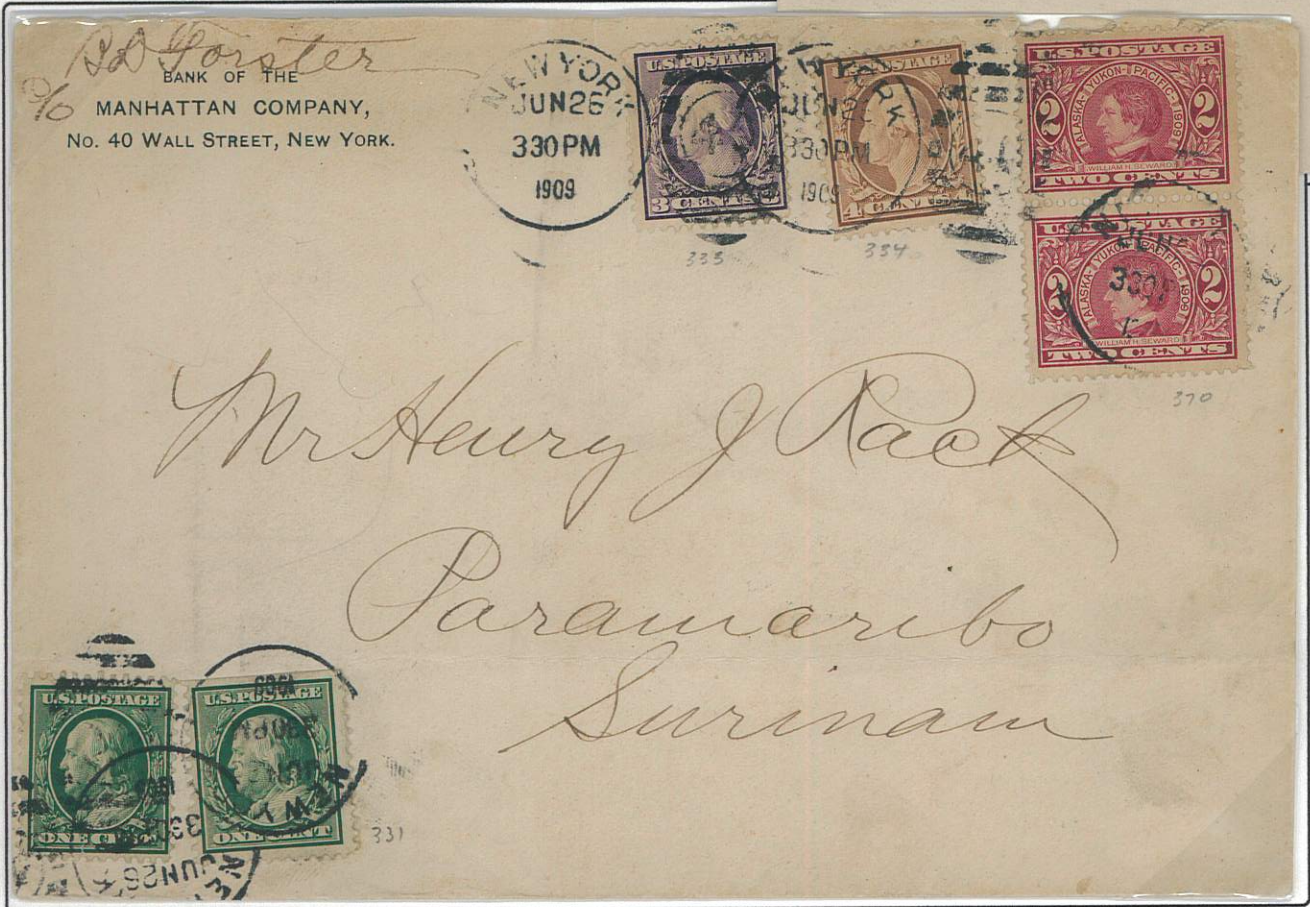 Forster
c/o
BANK OF THE
MANHATTAN COMPANY,
No. 40 WALL STREET, NEW YORK.
NEW YORK
JUN 26
3 30 PM
1909
U.S. POSTAGE
3 CENTS 3
NEW YORK
JUN 26
3 30 PM
1909
U.S. POSTAGE
4 CENTS
U.S. POSTAGE
ALASKA-YUKON-PACIFIC-1909
2 2
WILLIAM H. SEWARD
TWO CENTS
U.S. POSTAGE
ALASKA-YUKON-PACIFIC-1909
2 2
WILLIAM H. SEWARD
TWO CENTS
3 30
333
334
370
Mr Henry J Rack
Paramaribo
Surinam
U.S. POSTAGE
ONE CENT
U.S. POSTAGE
ONE CENT
331
1909
3 30 PM
JUN
NEW Y
1909
3 30
JUN 26
NE